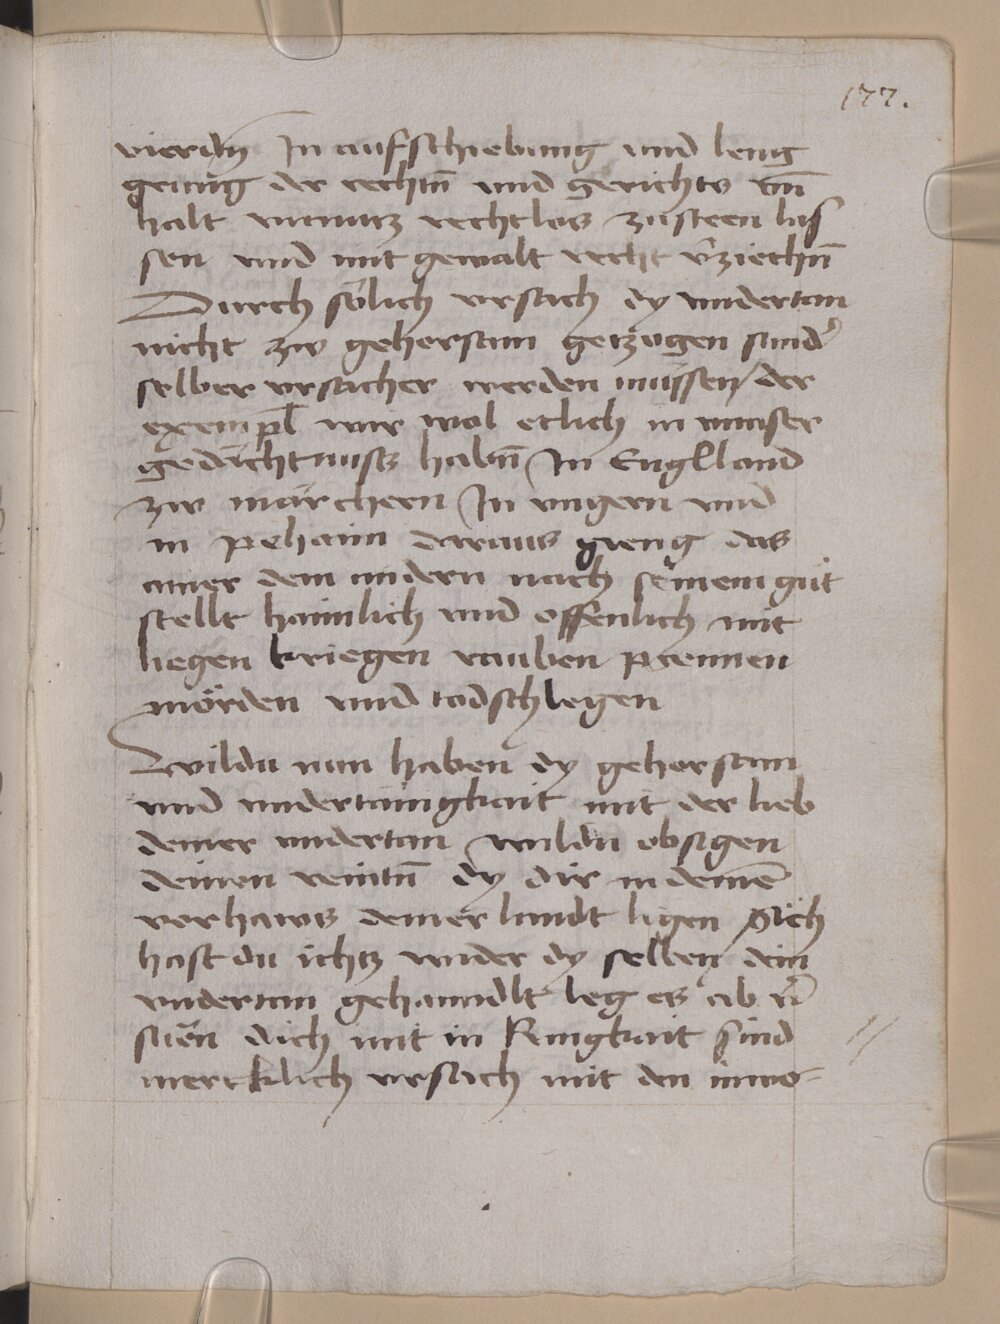 177.
vierdn In aufschiebung und leng
gerung der rechtn̄ und gerichts vn̄
halt unnutz rechtlos zusteen las
sen und mit gewalt recht v̄ziechn̄
Durch sölich ursach dy undertan
nicht zw gehorsam getzogen sund
selber ursacher werden müssen der
exempl wir wol etlich in unser
gedächtnusz habn̄ In Englland
zw märchern In ungern und
in pehaim daraus gieng das
ainer dem andern nach seinem güt
stellt haimlich und offenlich mit
liegen kriegen rauben prennen
mörden und todschlegen
Wildu nun haben dy gehorsam
und undertänigkait mit der lieb
deiner undertan wildu obsigen
deinen veintn̄ dy dir in deinē
vorhaws deiner landt ligen
hast du ichtz wider dy selben dein
undertan gehanndlt leg es ab
dich mit in sind
mercklich ursach mit den inwo-